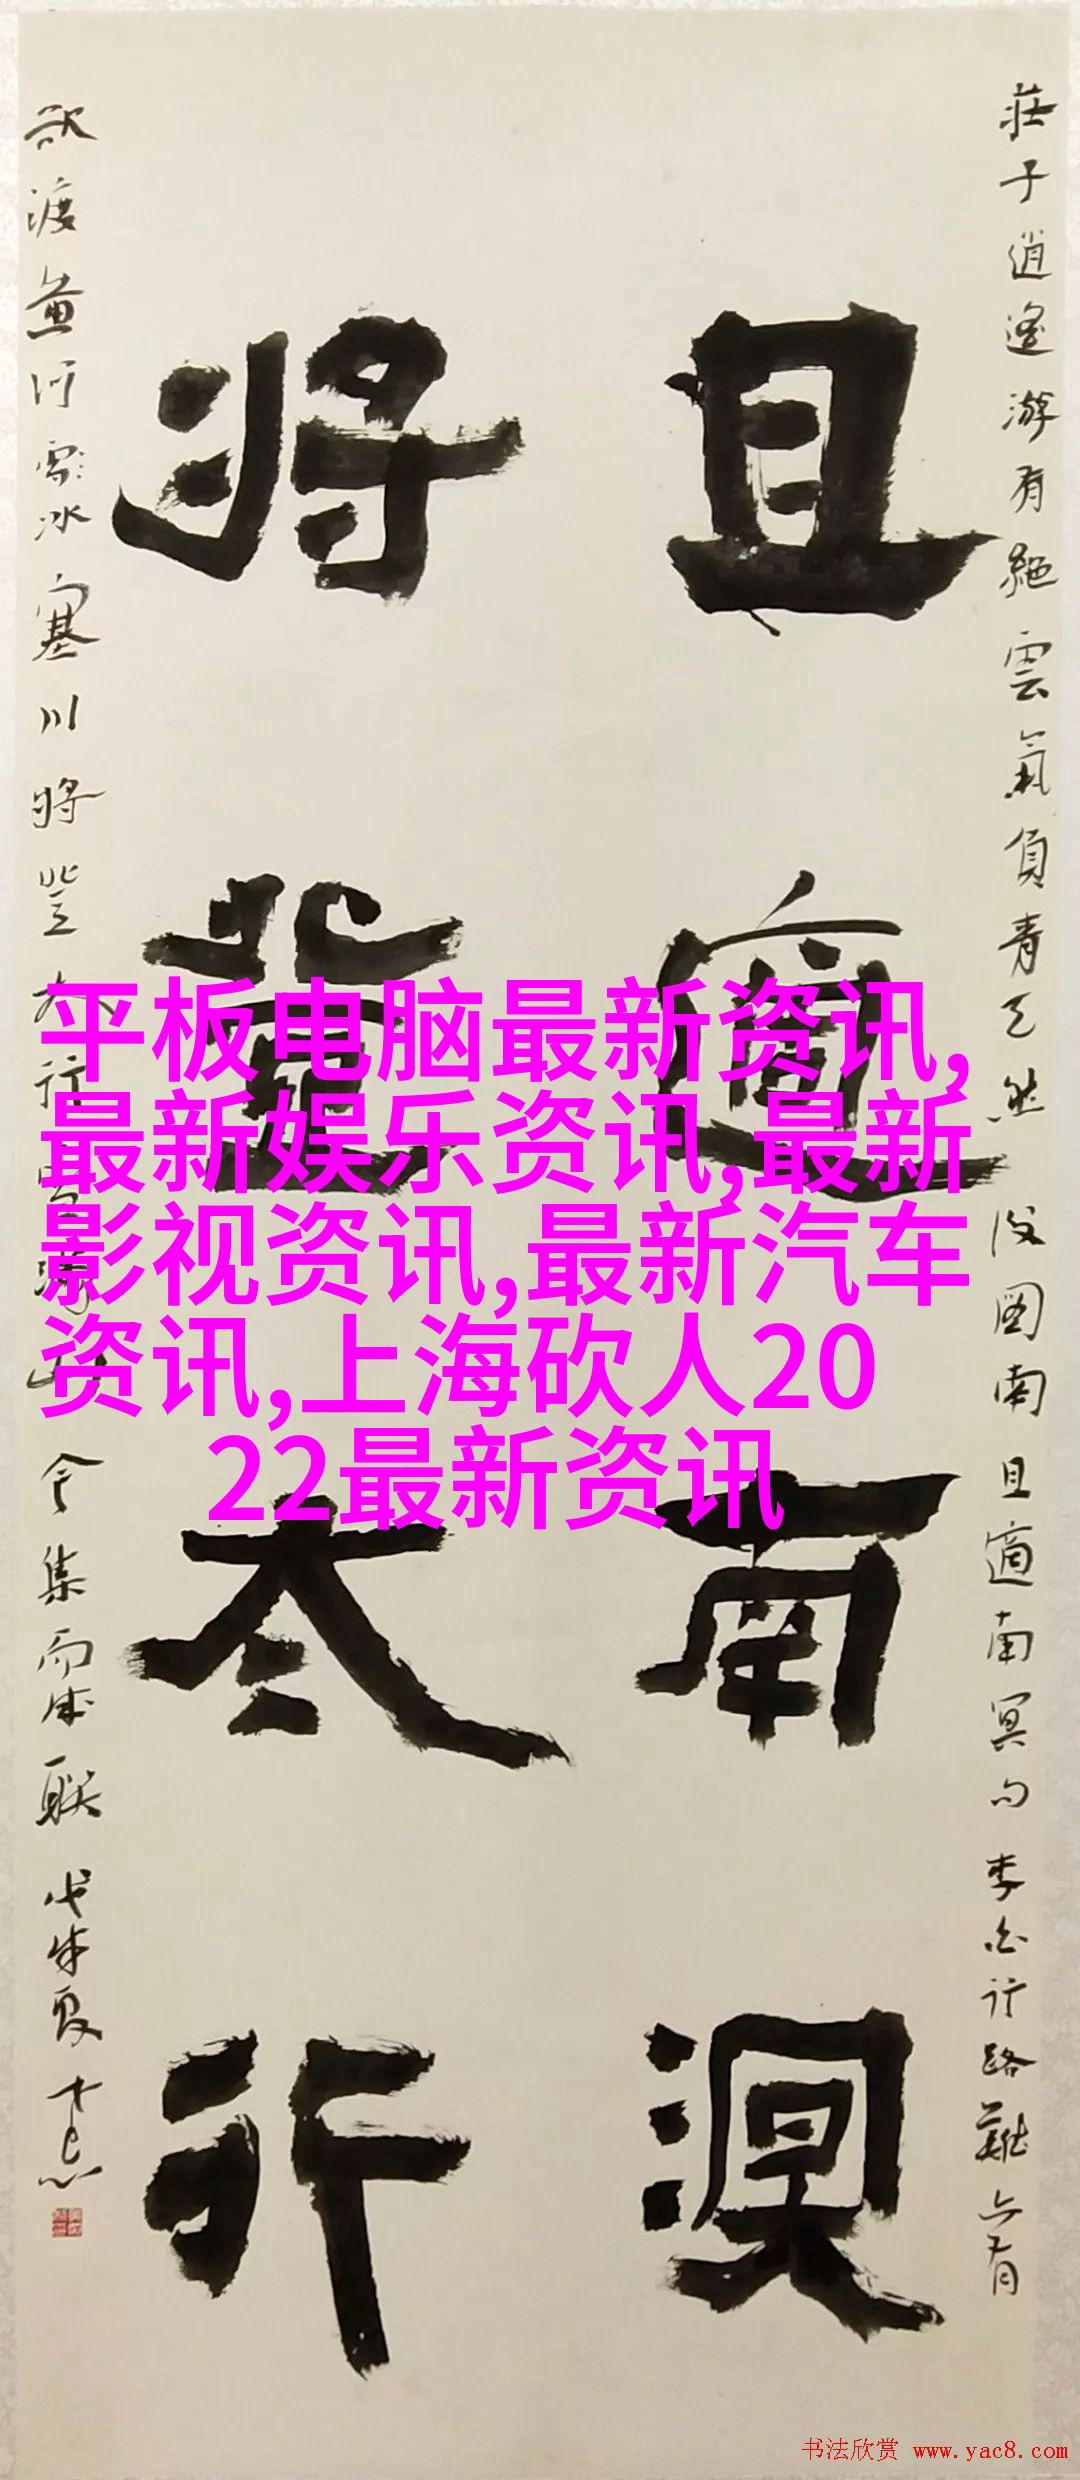 莊子逍遙游有絕雲氣負青天然後圖南且適南冥句李白行路難亦有
且適南溟
將登太行
欲渡黃河冰塞川將登太行雪滿山今集而成聯戊戌夏
平板电脑最新资讯,
最新娱乐资讯,最新
影视资讯,最新汽车
资讯,上海砍人20
22最新资讯
书法欣赏 www.yac8.com